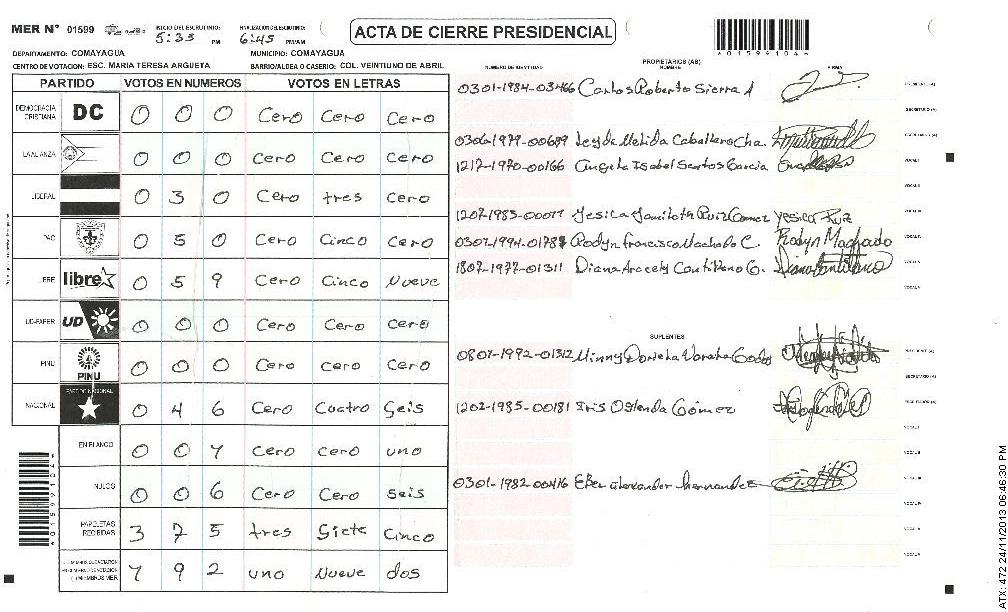 MER N° 01599 INICIO DEL ESCRUTINIO: 5:33 PM FINALIZACION DEL ESCRUTINIO: 6:45 PM/AM ACTA DE CIERRE PRESIDENCIAL
DEPARTAMENTO: COMAYAGUA MUNICIPIO: COMAYAGUA
CENTRO DE VOTACION: ESC. MARIA TERESA ARGUETA BARRIO/ALDEA O CASERIO: COL. VEINTIUNO DE ABRIL
NUMERO DE IDENTIDAD PROPIETARIOS (AS) NOMBRE FIRMA
PARTIDO VOTOS EN NUMEROS VOTOS EN LETRAS
0301-1984-03466 Carlos Roberto Sierra A PRESIDENTE (A)
DEMOCRACIA CRISTIANA DC 0 0 0 Cero Cero Cero
SECRETARIO (A)
0306-1979-00689 Leyda Melida Caballero Cha. ESCRUTADOR (A)
LA ALIANZA 0 0 0 Cero Cero Cero
1217-1970-00166 Angela Isabel Santos Garcia VOCAL I
LIBERAL 0 3 0 Cero tres Cero
1207-1983-00077 Yesica Yamileth Ruiz Gomez Yesica Ruiz
PAC 0 5 0 Cero Cinco Cero
0302-1994-01787 Rodyn Francisco Machado C. Rodyn Machado
1807-1977-01311 Diana Aracely Cantillano G.
LIBRE libre 0 5 9 Cero Cinco Nueve
UD-FAPER UD 0 0 0 Cero Cero Cero
SUPLENTES
PINU PINU 0 0 0 Cero Cero Cero
0807-1992-01312 PRESIDENTE (A)
SECRETARIO (A)
NACIONAL PARTIDO NACIONAL 0 4 6 Cero Cuatro Seis
1202-1985-00181 Iris Oslenda Gómez ESCRUTADOR (A)
EN BLANCO 0 0 1 Cero Cero uno
NULOS 0 0 6 Cero Cero Seis
0301-1982-00416 Eber Alexander Hernandez
PAPELETAS RECIBIDAS 3 7 5 tres Siete Cinco
MIEMBROS MER 1 9 2 uno Nueve dos
6015991046
6015991046
ATX: 472 24/11/2013 06:46:30 PM